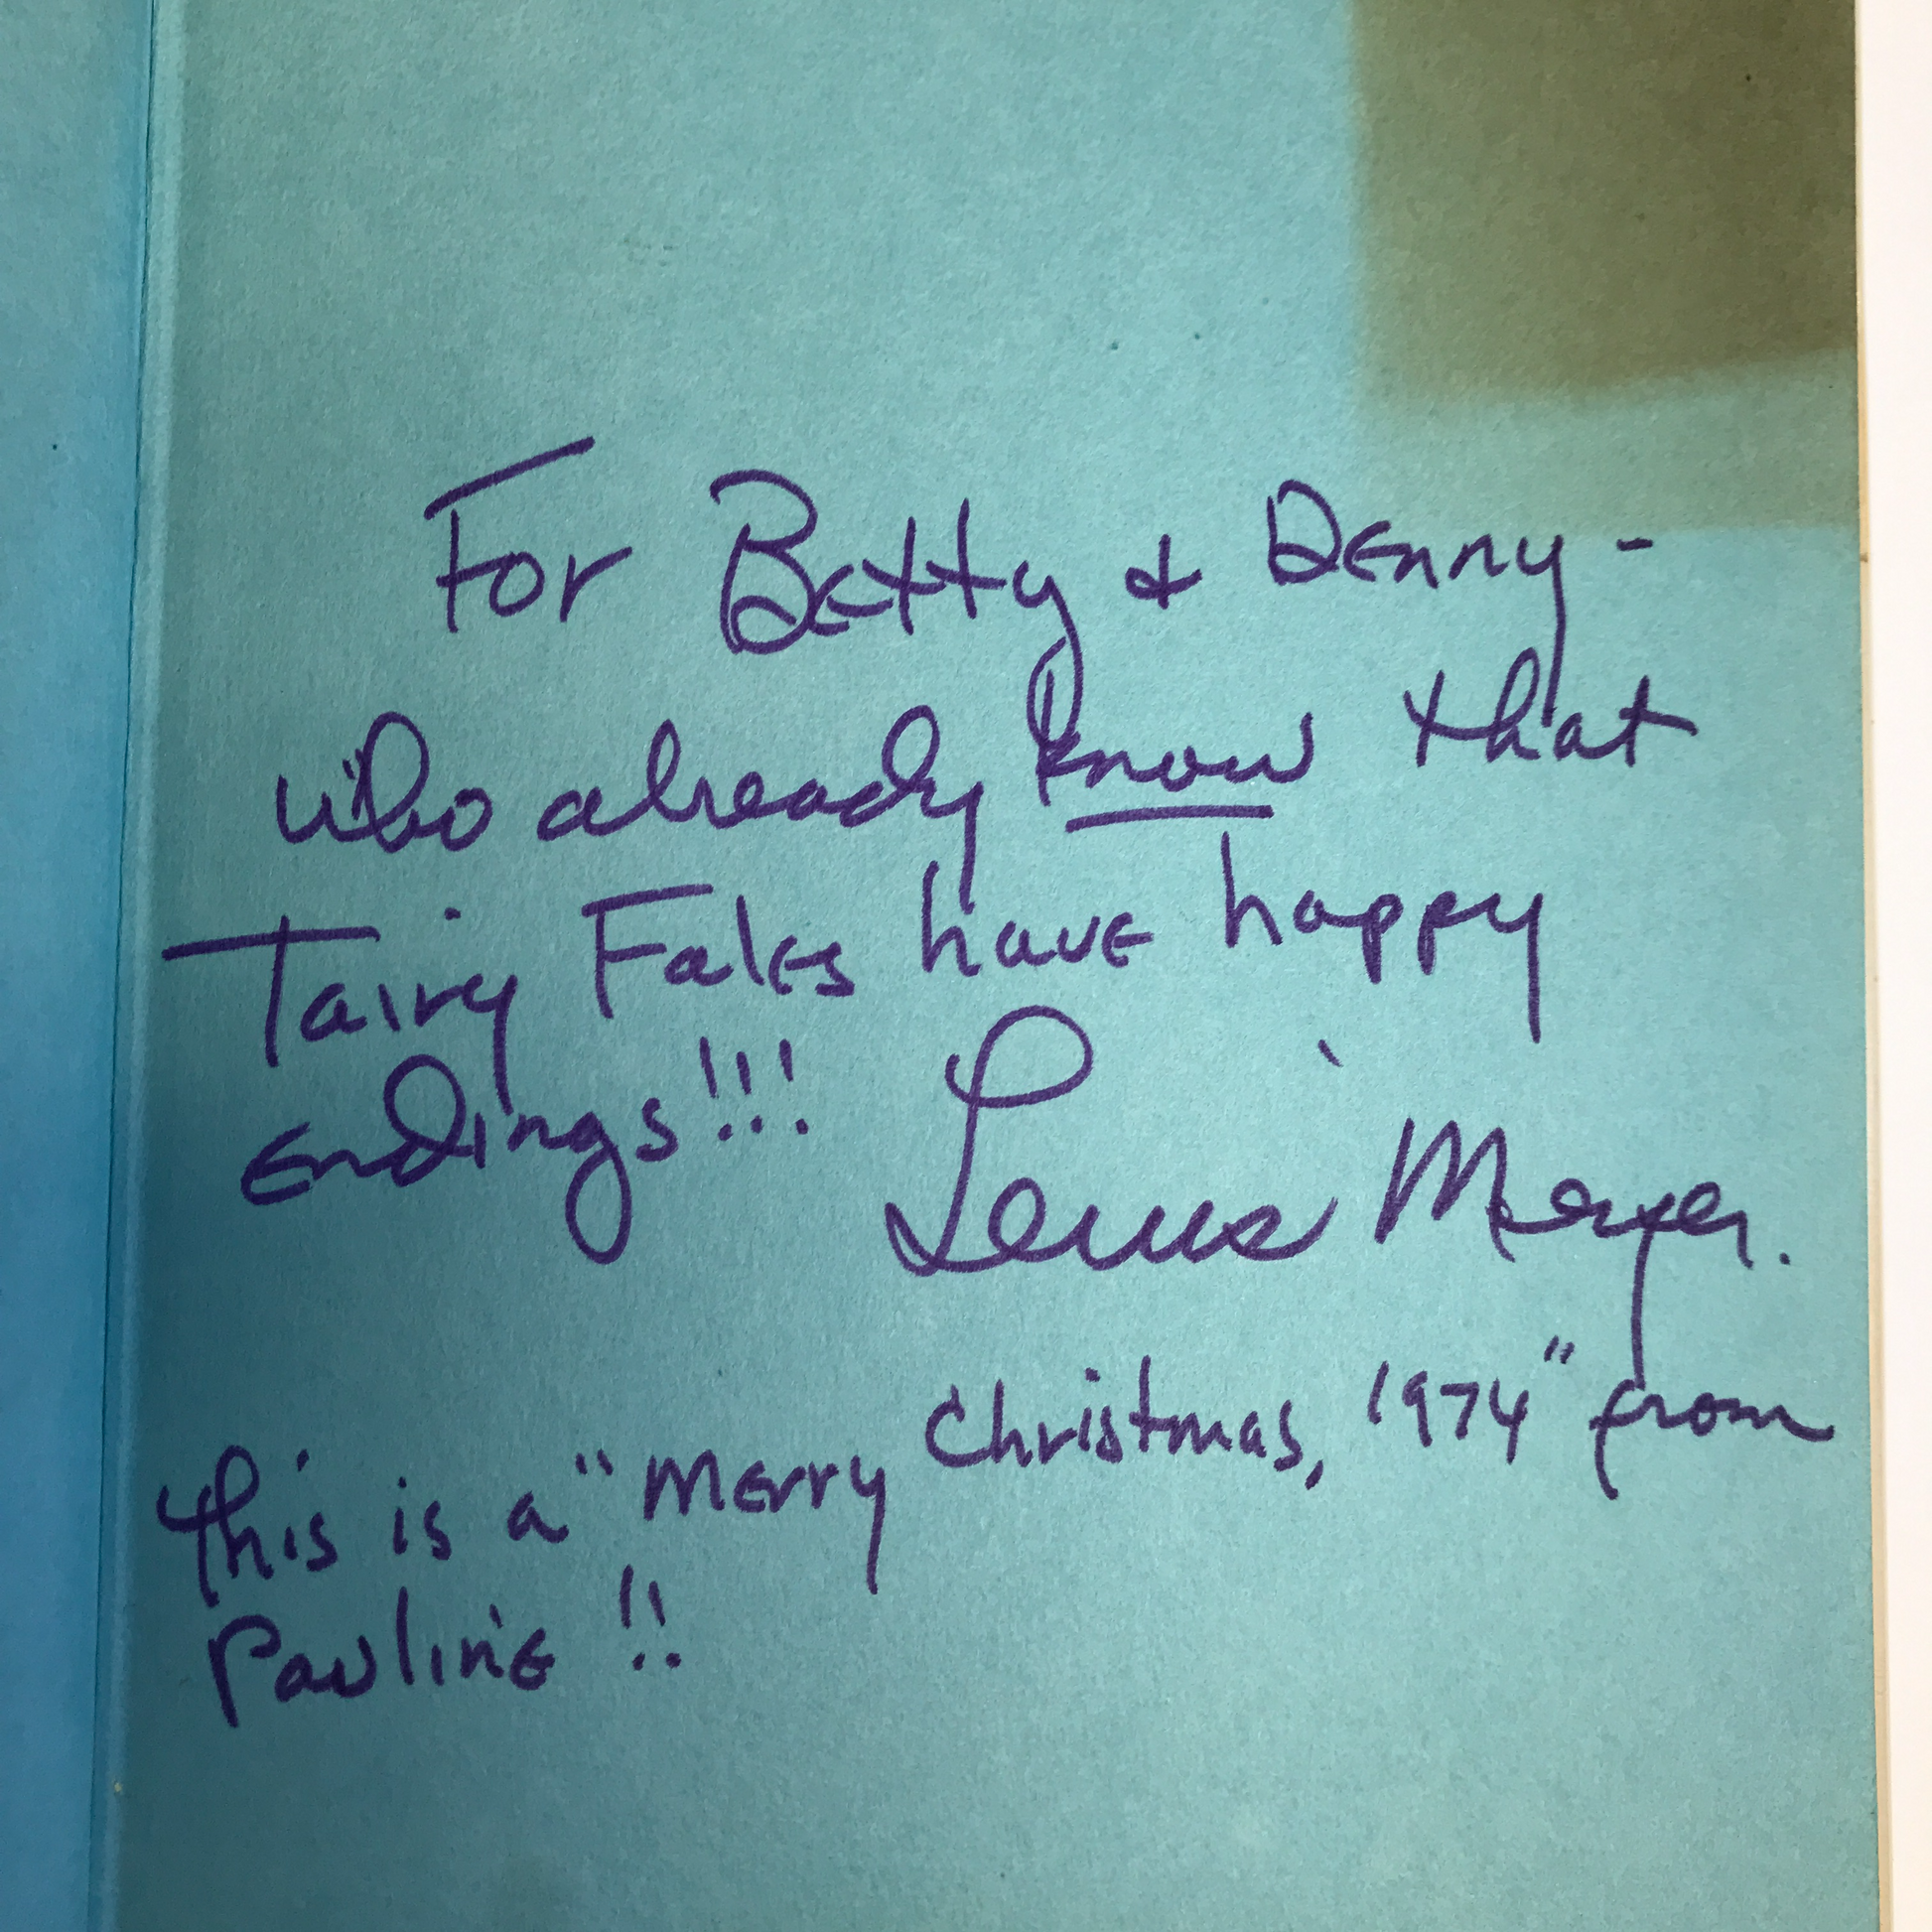 For Betty & Denny -
who already know that
Tairy Fales have happy
Endings!!! Lewis Meyer.
This is a "Merry Christmas, 1974" from
Pauline!!